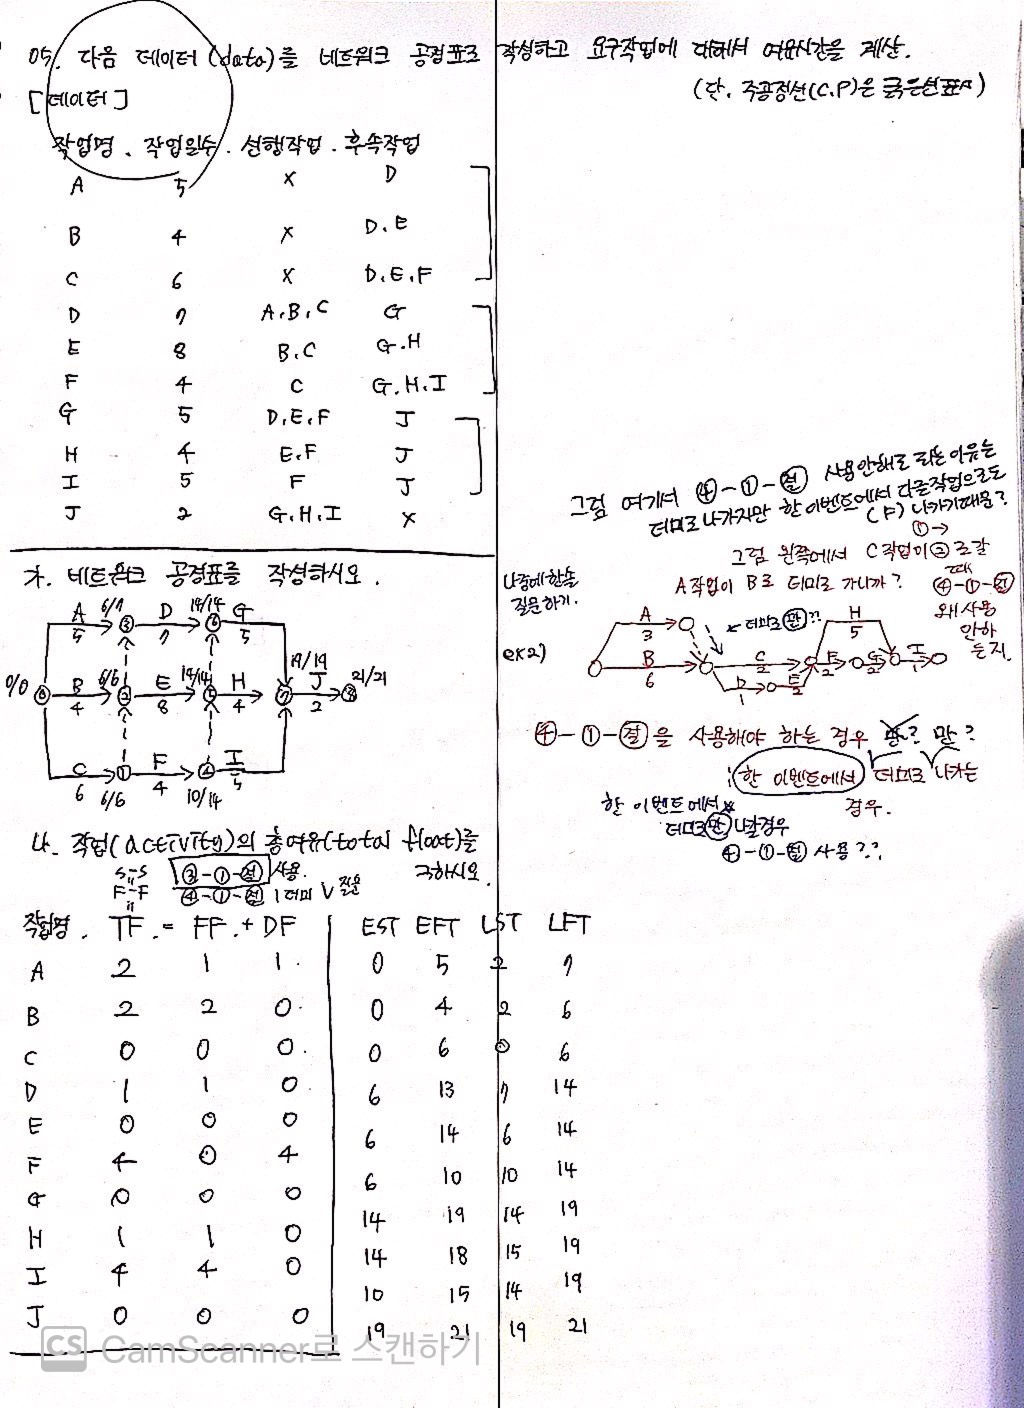 05. 다음 데이터(data)를 네트워크 공정표로 작성하고 요구작업에 대해서 여유시간을 계산.
(단. 주공정선(C.P)은 굵은선표시)
[데이터]
작업명. 작업일수. 선행작업. 후속작업
A 5 X D
B 4 X D.E
C 6 X D.E.F
D 7 A.B.C G
E 8 B.C G.H
F 4 C G.H.I
G 5 D.E.F J
H 4 E.F J
I 5 F J
J 2 G.H.I X
가. 네트워크 공정표를 작성하시오.
A 5 6/7 ③ D 7 14/14 ⑥ G 5
0/0 ⓪ B 4 6/6 ② E 8 14/14 ⑤ H 4 19/19 ⑦ J 2 21/21 ⑧
C 6 6/6 ① F 4 10/14 ④ I 5
나. 작업(activity)의 총여유(total float)를 구하시오.
S-S
F-F
③-①-절 사용.
④-①-절
작업명. TF. = FF. + DF EST EFT LST LFT
A 2 1 1. 0 5 2 7
B 2 2 0. 0 4 2 6
C 0 0 0. 0 6 0 6
D 1 1 0 6 13 7 14
E 0 0 0 6 14 6 14
F 4 0 4 6 10 10 14
G 0 0 0 14 19 14 19
H 1 1 0 14 18 15 19
I 4 4 0 10 15 14 19
J 0 0 0 19 21 19 21
그럼 여기서 ④-①-절 사용안해도 되는 이유는
더미로 나가지만 한 이벤트에서 다른작업으로도
(F) 나가기때문?
①→
그럼 왼쪽에서 C작업이 ②로갈때
A작업이 B로 더미로 가니까? ④-①-절
왜 사용
안하
는지.
나중에한솔
질문하기.
ex2)
A 3
B 6
← 더미로만??
C
D 1
E 2
H 5
F 2
I 1
④-①-절을 사용해야 하는 경우 만? 만?
: 한 이벤트에서 더미로 나가는
경우.
한 이벤트에서
더미로만 나갈경우
④-①-절 사용??
CS CamScanner로 스캔하기